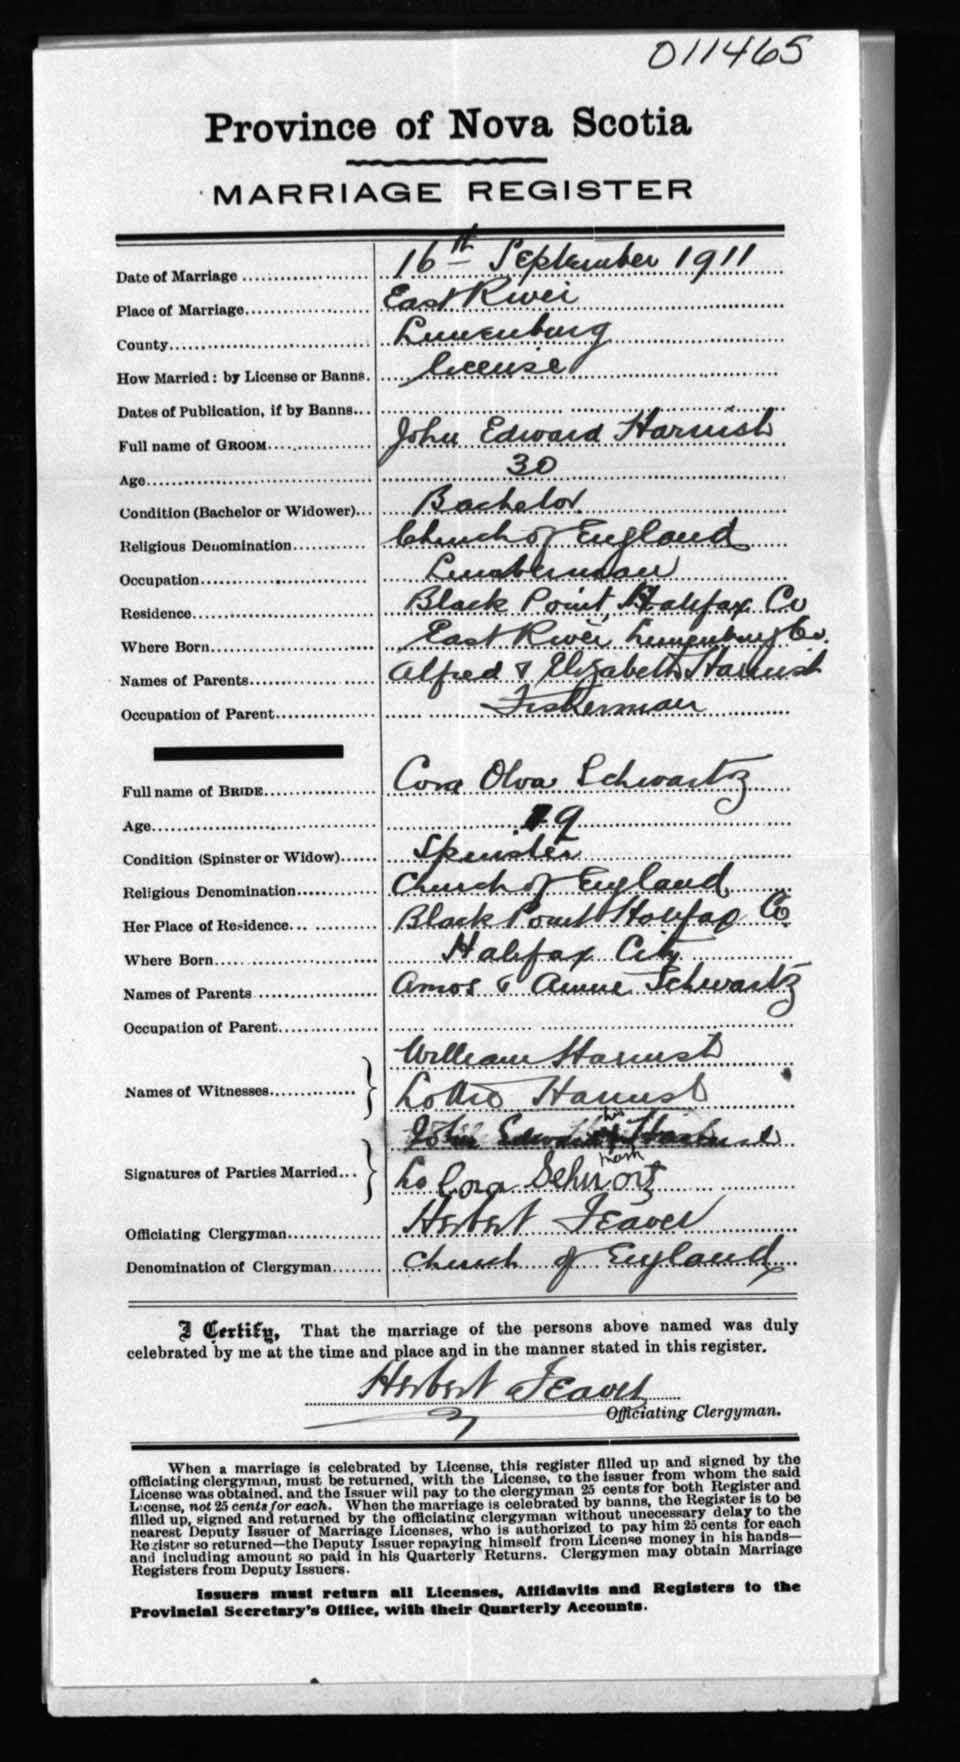 011465
Province of Nova Scotia
MARRIAGE REGISTER
Date of Marriage 16th September 1911
Place of Marriage East River
County Lunenburg
How Married: by License or Banns. license
Dates of Publication, if by Banns
Full name of GROOM John Edward Harnish
Age 30
Condition (Bachelor or Widower) Bachelor
Religious Denomination Church of England
Occupation Lumberman
Residence Black Point, Halifax Co
Where Born East River, Lunenburg Co.
Names of Parents Alfred & Elizabeth Harnish
Occupation of Parent Fisherman
Full name of BRIDE Cora Olva Schwartz
Age 19
Condition (Spinster or Widow) Spinster
Religious Denomination Church of England
Her Place of Residence Black Point Halifax Co
Where Born Halifax City
Names of Parents Amos & Annie Schwartz
Occupation of Parent
Names of Witnesses William Harnish
Lottie Harnish
Signatures of Parties Married John Edward his mark Harnish
Cora Schwartz
Officiating Clergyman Herbert Feaver
Denomination of Clergyman Church of England
I Certify, That the marriage of the persons above named was duly
celebrated by me at the time and place and in the manner stated in this register.
Herbert Feaver
Officiating Clergyman.
When a marriage is celebrated by License, this register filled up and signed by the
officiating clergyman, must be returned, with the License, to the issuer from whom the said
License was obtained, and the Issuer will pay to the clergyman 25 cents for both Register and
License, not 25 cents for each. When the marriage is celebrated by banns, the Register is to be
filled up, signed and returned by the officiating clergyman without unnecessary delay to the
nearest Deputy Issuer of Marriage Licenses, who is authorized to pay him 25 cents for each
Register so returned—the Deputy Issuer repaying himself from License money in his hands—
and including amount so paid in his Quarterly Returns. Clergymen may obtain Marriage
Registers from Deputy Issuers.
Issuers must return all Licenses, Affidavits and Registers to the
Provincial Secretary's Office, with their Quarterly Accounts.